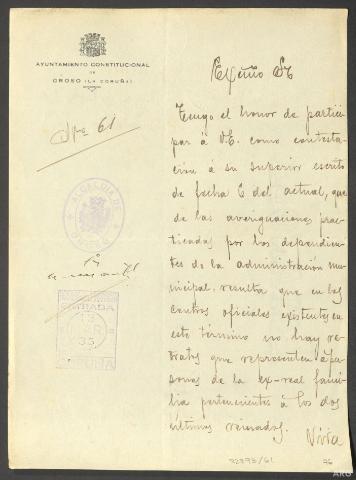 AYUNTAMIENTO CONSTITUCIONAL
DE
OROSO (LA CORUÑA)
Nº 61
ALCALDIA DE
OROSO
ENTRADA
13
MAR
35
CORUÑA
Excmo Sr
Tengo el honor de partici-
par á V.E. como contesta-
cion á su superior escrito
de fecha 6 del actual, que
de las averiguaciones prac-
ticadas por los dependien-
tes de la administración mu-
nicipal, resulta que en los
centros oficiales existentes en
este término no hay re-
tratos que representen á per-
sonas de la ex-real fami-
lia pertenecientes á los dos
últimos reinados.
Viva
32393/61
76
ARG